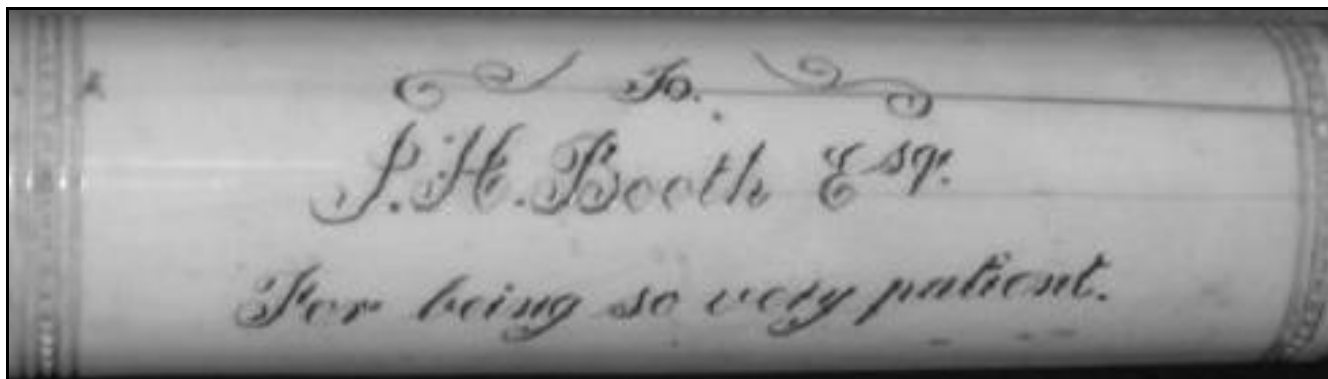 To.
J. H. Booth Esqr.
For being so very patient.